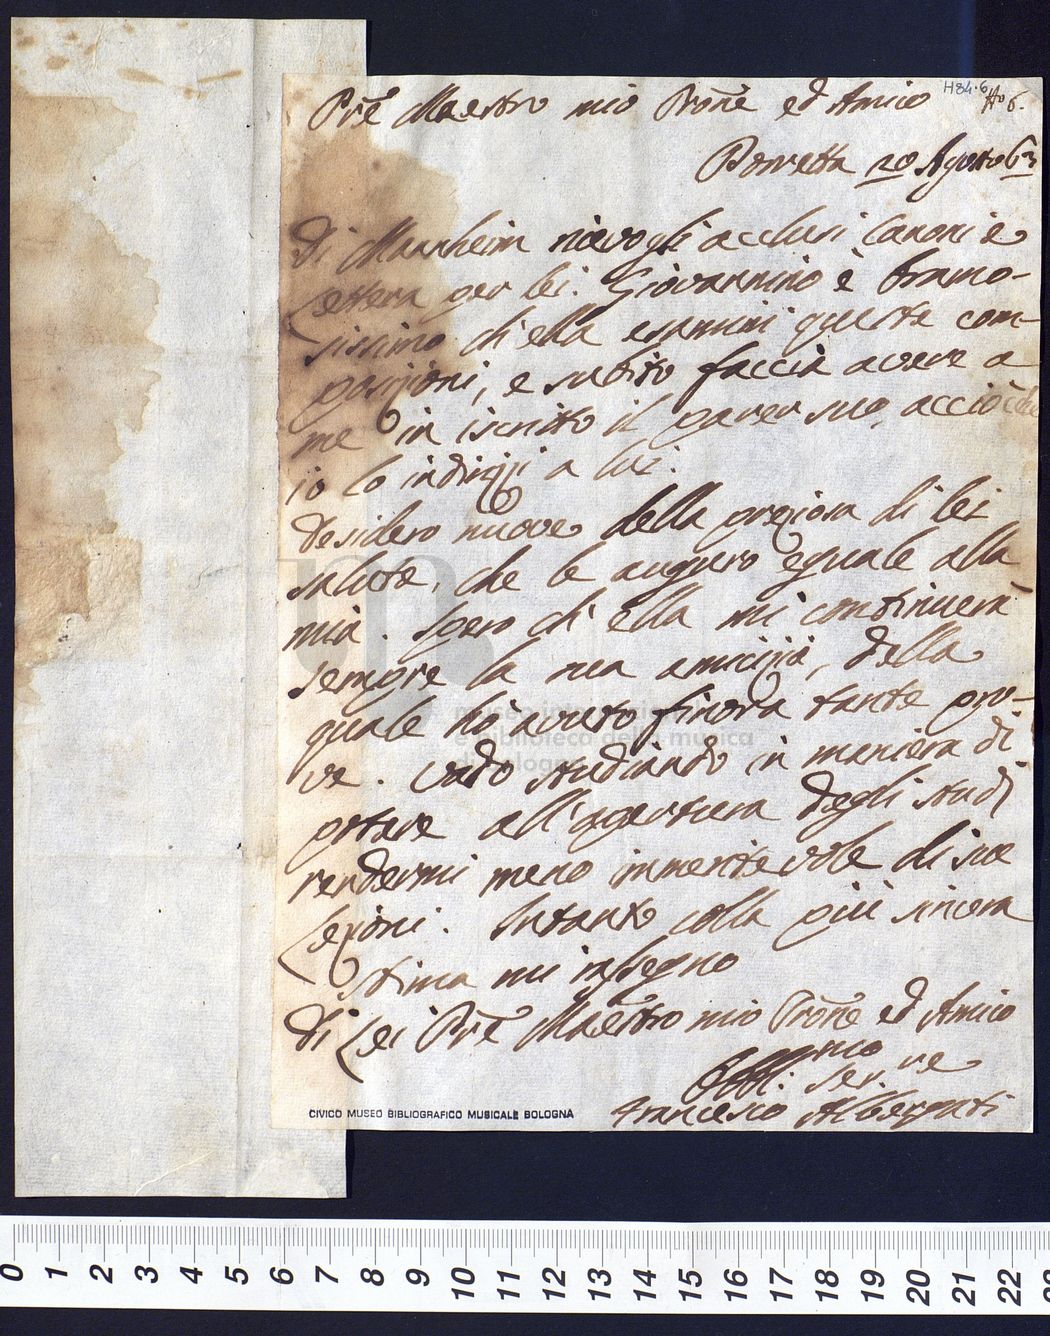 H84.6
No 6.
Pre Maestro mio Prone ed Amico
Porretta 20 Agosto 63
Di Manheim ricevo gli acclusi Canoni e
Lettera per lei. Giovannino è bramo-
sissimo ch'ella esamini queste com-
posizioni, e subito faccia avere a
me in iscritto il parer suo, acciò che
io lo indirizzi a lui.
Desidero nuove della preziosa di lei
salute, che le auguro eguale alla
mia. Spero ch'ella mi continuerà
sempre la sua amicizia, della
quale hò avuto finora tante pro-
ve. Vado studiando in maniera di
potere all'apertura degli studi
rendermi meno immeritevole di sue
lezioni. Intanto colla più sincera
stima mi rassegno
Di Lei Pre Maestro mio Prone ed Amico
Obbl.mo Ser.re
Francesco Albergati
CIVICO MUSEO BIBLIOGRAFICO MUSICALE BOLOGNA
museo internazionale
e biblioteca della musica
di bologna
0 1 2 3 4 5 6 7 8 9 10 11 12 13 14 15 16 17 18 19 20 21 22